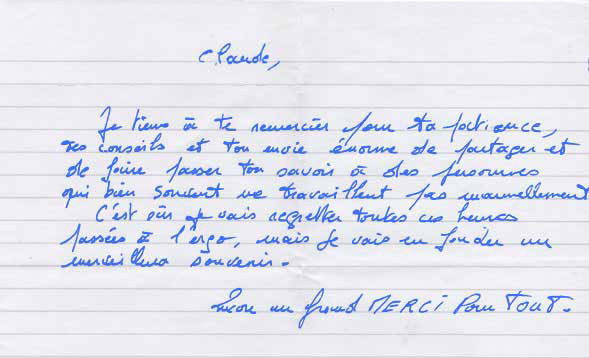 Claude,
Je tiens à te remercier pour ta patience,
tes conseils et ton envie énorme de partager et
de faire passer ton savoir à des personnes
qui bien souvent ne travaillent pas manuellement
C'est sûr je vais regretter toutes ces heures
passées à l'ergo, mais je vais en garder un
merveilleux souvenir.
Encore un grand MERCI Pour TOUT.